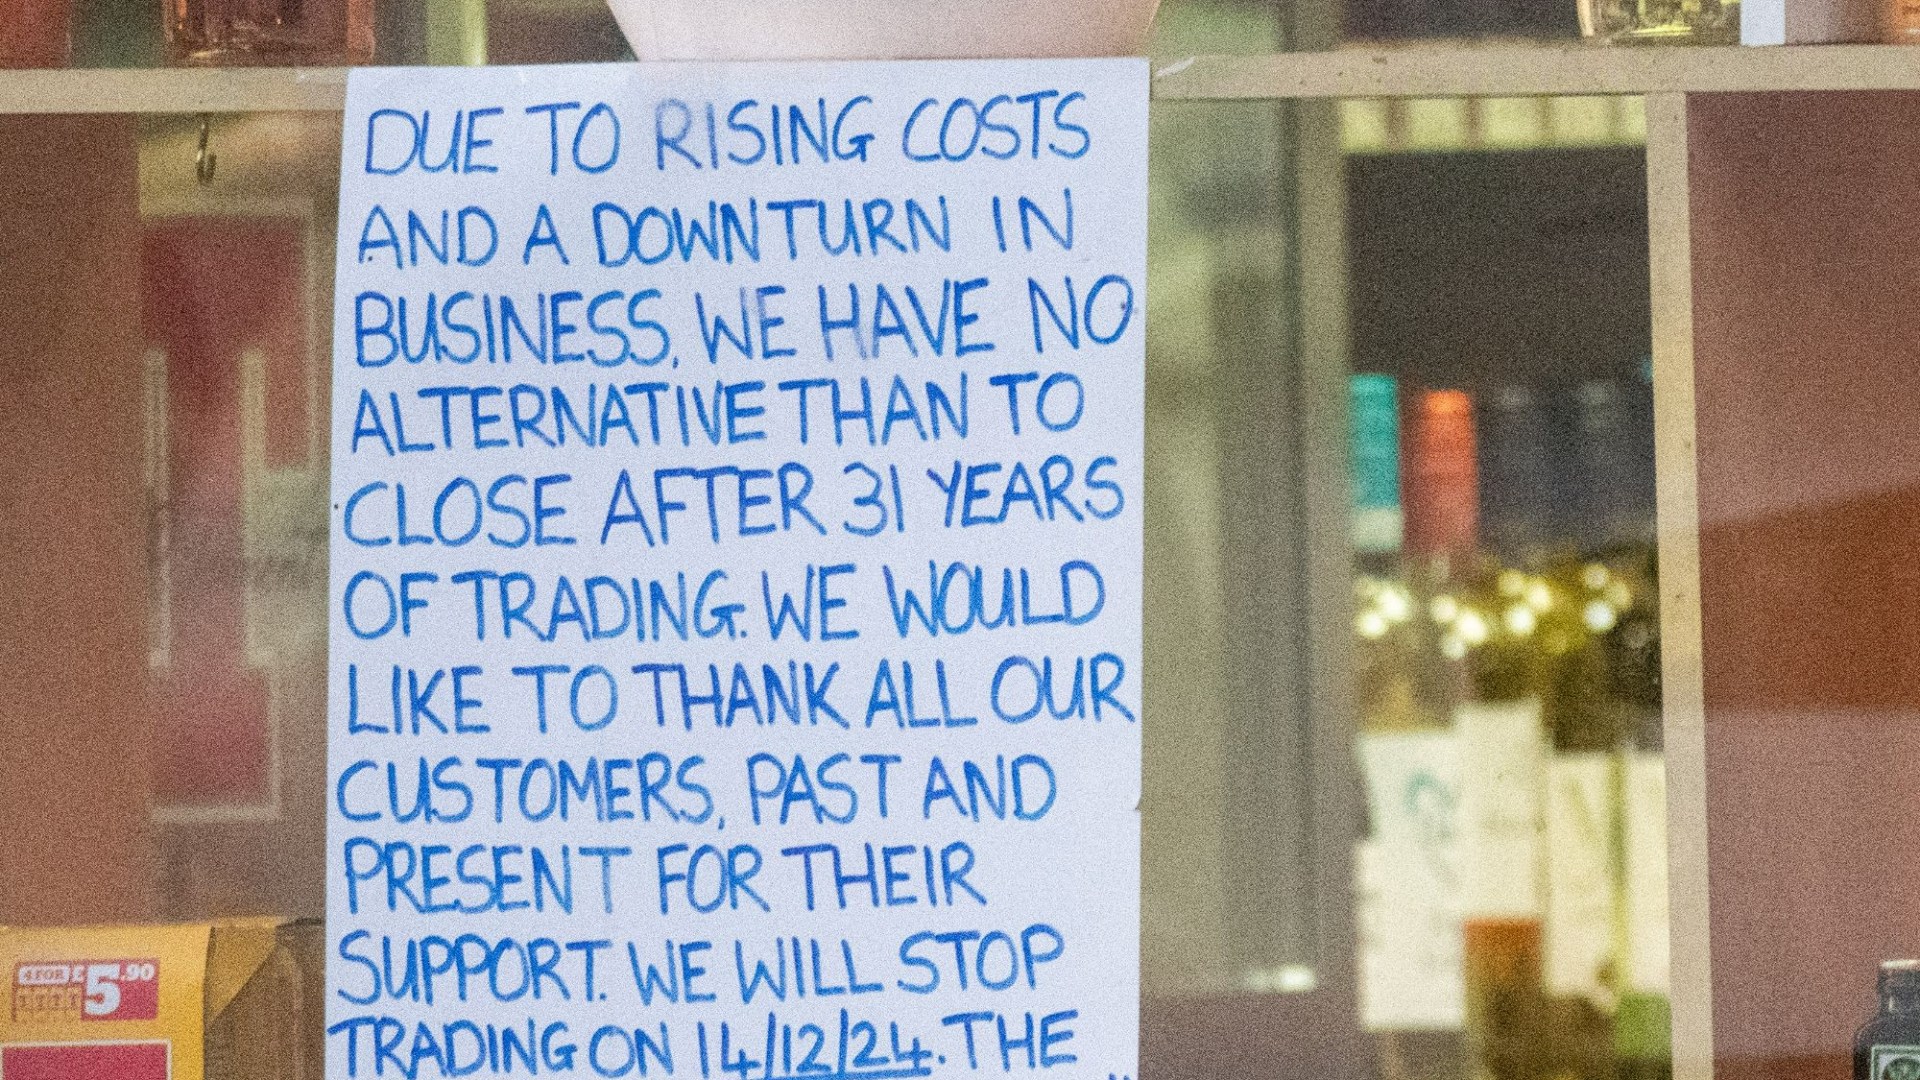 DUE TO RISING COSTS
AND A DOWNTURN IN
BUSINESS, WE HAVE NO
ALTERNATIVE THAN TO
CLOSE AFTER 31 YEARS
OF TRADING. WE WOULD
LIKE TO THANK ALL OUR
CUSTOMERS, PAST AND
PRESENT FOR THEIR
SUPPORT. WE WILL STOP
TRADING ON 14/12/24. THE
4 FOR £5.90